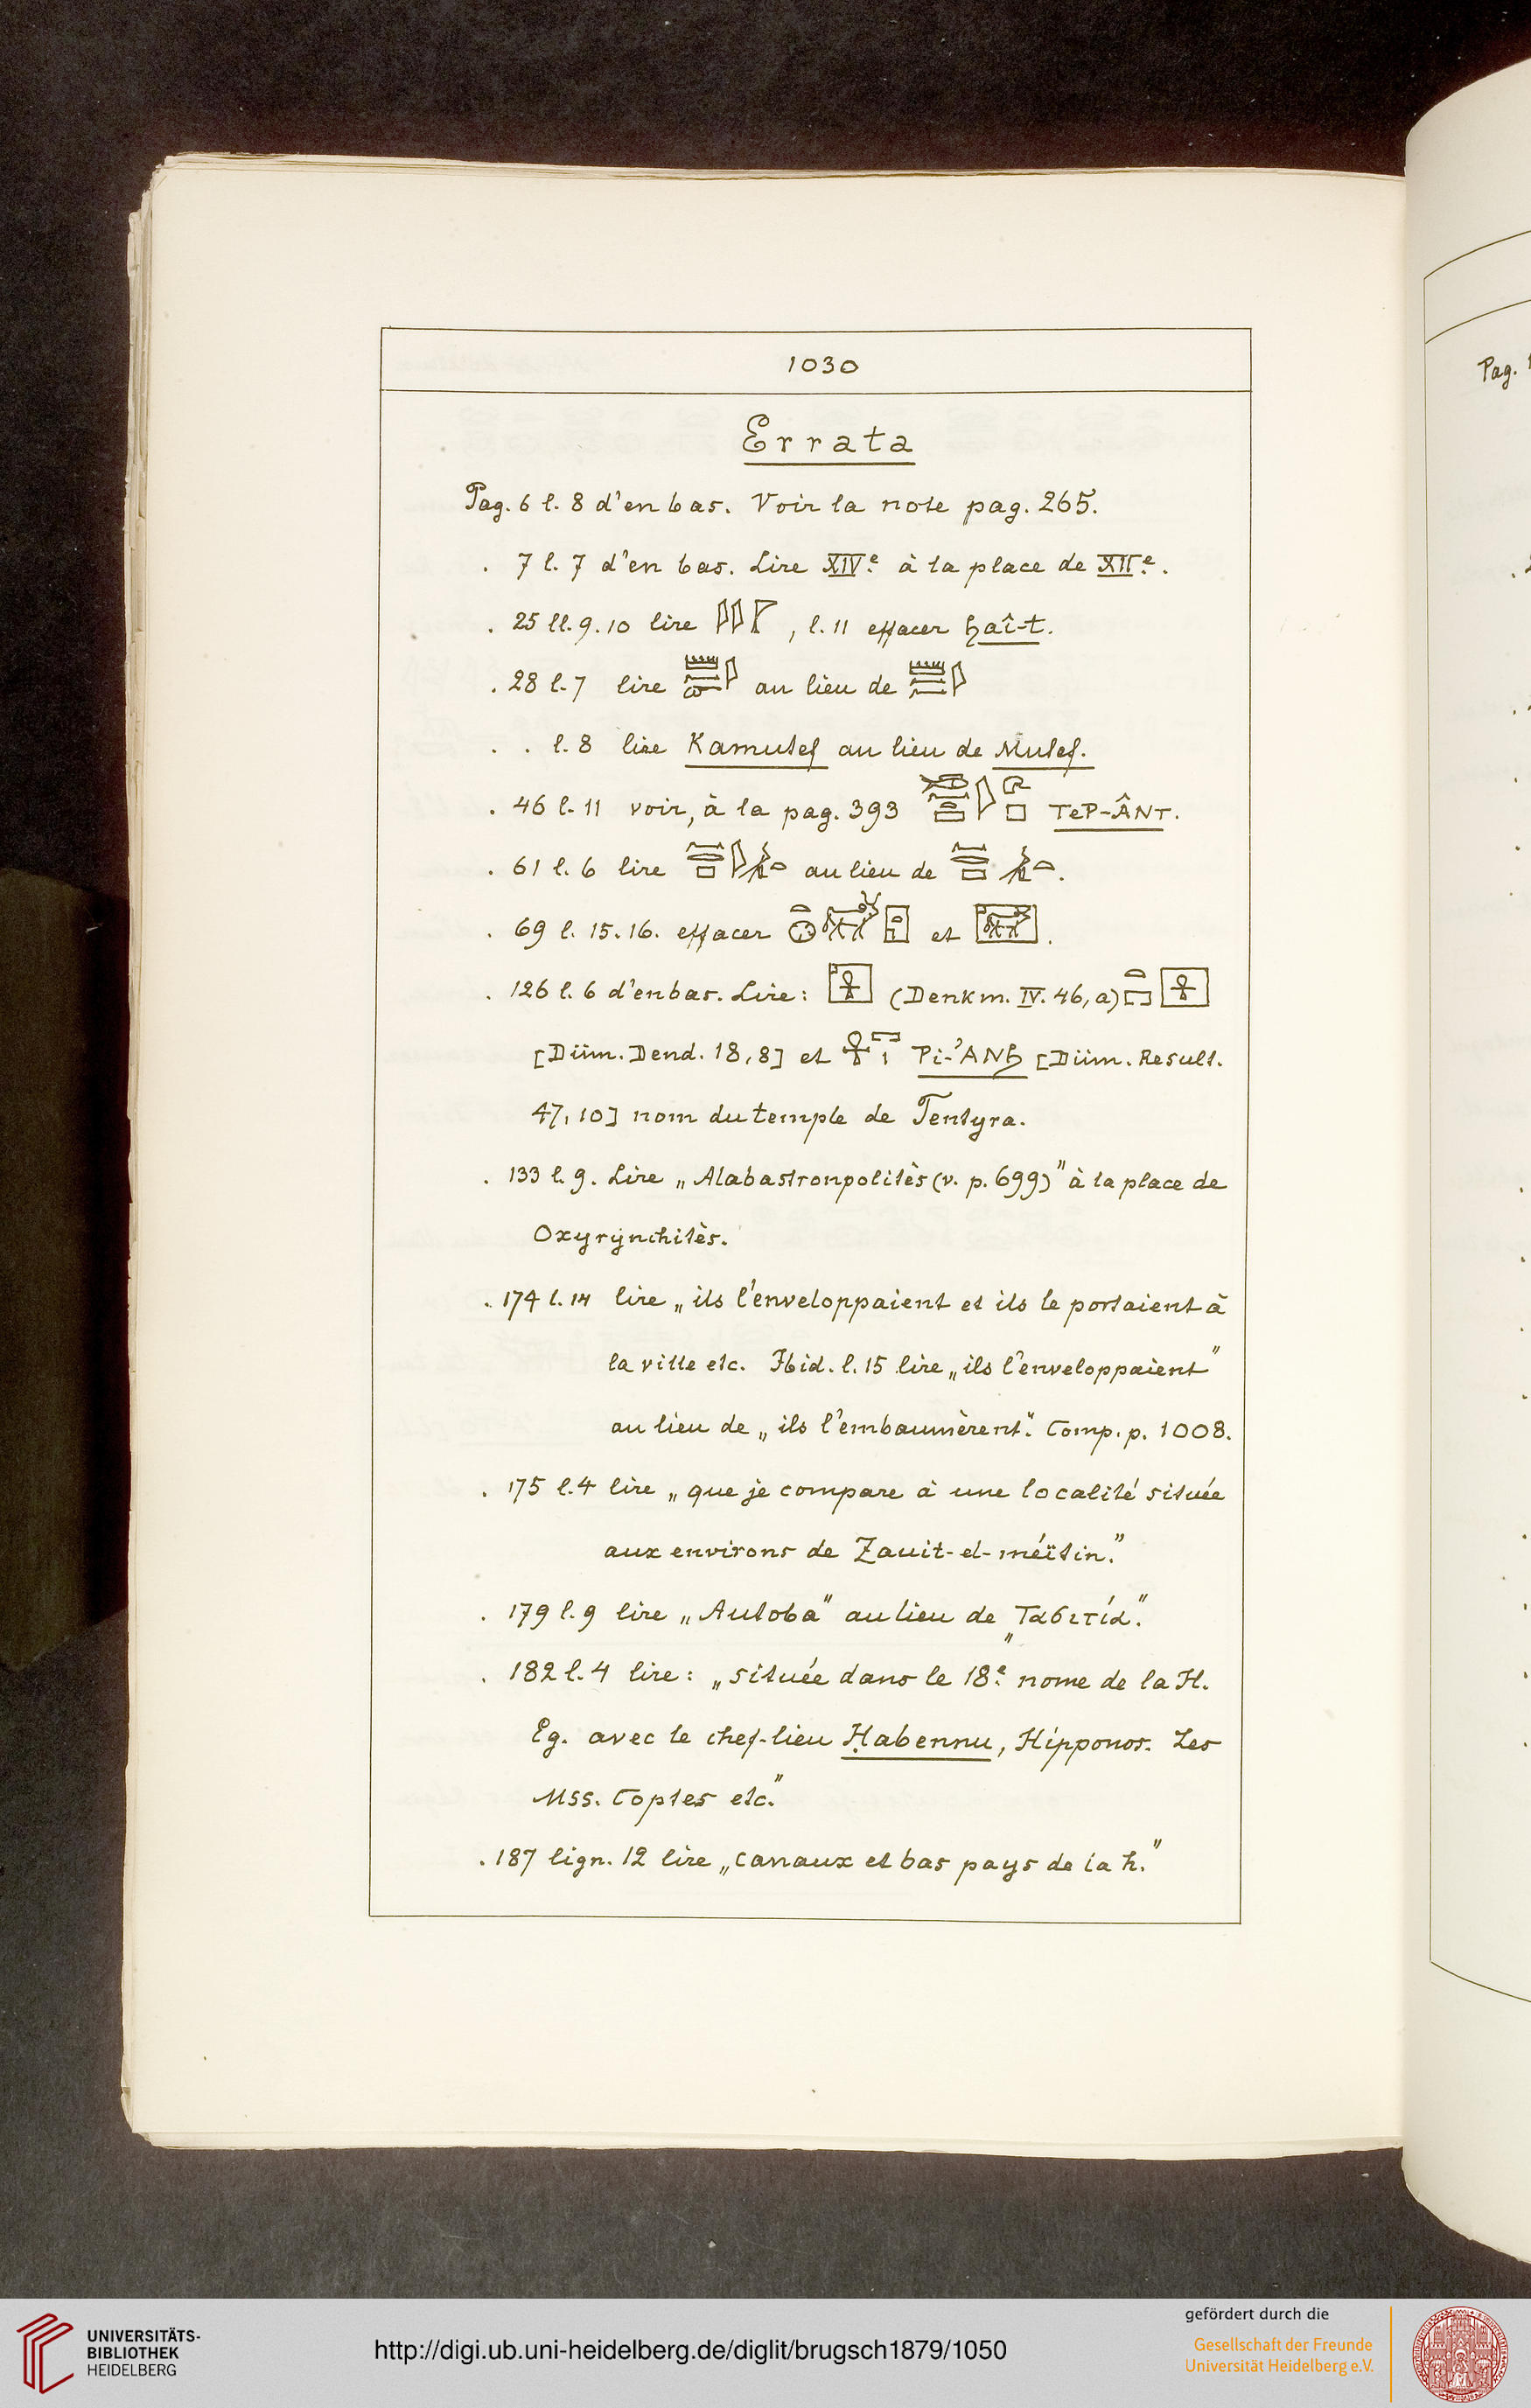 1030
Errata
Pag. 6 l. 8 d'en bas. Voir la note pag. 265.
. 7 l. 7 d'en bas. Lire XIVe à la place de XIIe.
. 25 ll. 9. 10 lire , l. 11 effacer ḫaî-t.
. 28 l. 7 lire au lieu de
. . l. 8 lire Kamutef au lieu de Mutef.
. 46 l. 11 voir, à la pag. 393 TeP-ÂNT.
. 61 l. 6 lire au lieu de .
. 69 l. 15. 16. effacer et .
. 126 l. 6 d'en bas. Lire: (Denkm. IV. 46, a)
[Düm. Dend. 18, 8] et Pi-'ANḫ [Düm. Result.
47, 10] nom du temple de Tentyra.
. 133 l. 9. Lire „Alabastronpolitès (v. p. 699)" à la place de
Oxyrynchitès.
. 174 l. 14 lire „ils l'enveloppaient et ils le portaient à
la ville etc. Ibid. l. 15 lire „ils l'enveloppaient"
au lieu de „ils l'embaumèrent". Comp. p. 1008.
. 175 l. 4 lire „que je compare à une localité située
aux environs de Zauit-el-méïtin."
. 179 l. 9 lire „Autoba" au lieu de „
. 182 l. 4 lire: „située dans le 18e nome de la H.
Eg. avec le chef-lieu Ḥabennu, Hipponos. Les
Mss. Coptes etc."
. 187 lign. 12 lire „canaux et bas pays de la h."
Pag.
UNIVERSITÄTS-
BIBLIOTHEK
HEIDELBERG
http://digi.ub.uni-heidelberg.de/diglit/brugsch1879/1050
gefördert durch die
Gesellschaft der Freunde
Universität Heidelberg e.V.